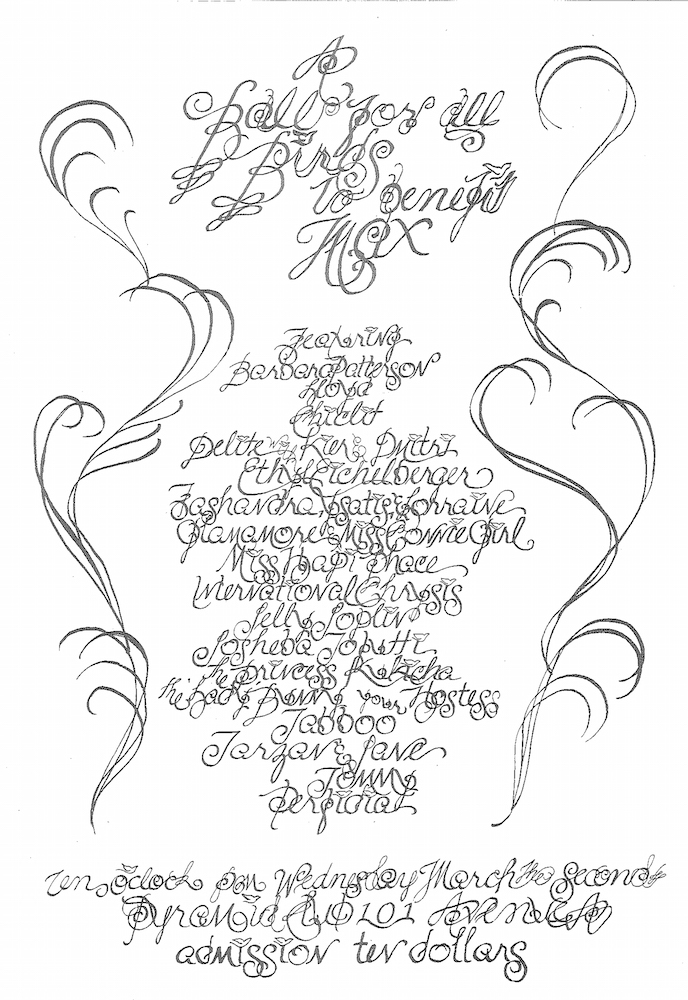 A
Ball for all
Birds
to benefit
Max
Featuring
Barbara Patterson
Lloyd
Chiclit
Delite with Kier & Dmitri
Ethyl Eichelberger
Fashandra, Tsatis, Lorraine
Glanamore Miss Connie Girl
Miss Hapi Phace
International Chrysis
Jelly Joplin
Sosheba
the Princess
the Lady Bunny your Hostess
Tabboo
Tarzan & Jane
Tommy
Perfidia
ten o'clock pm Wednesday March the Second
Pyramid Club 101 Avenue A
admission ten dollars